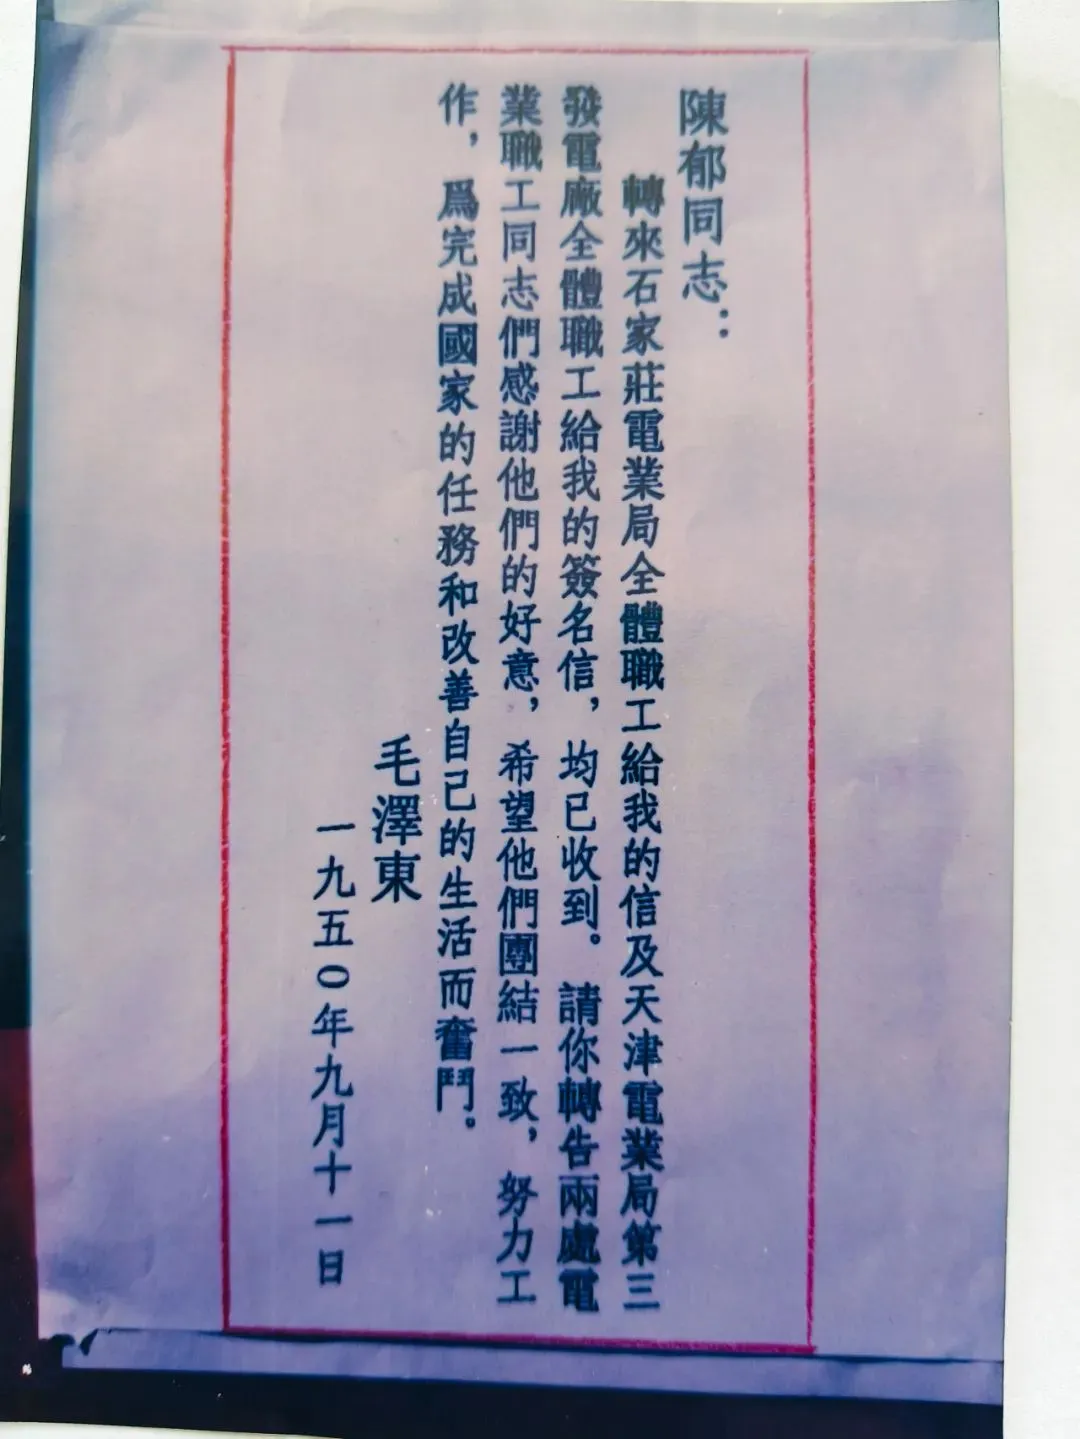 陳郁同志：
轉來石家莊電業局全體職工給我的信及天津電業局第三
發電廠全體職工給我的簽名信，均已收到。請你轉告兩處電
業職工同志們感謝他們的好意，希望他們團結一致，努力工
作，爲完成國家的任務和改善自己的生活而奮鬥。
毛澤東
一九五〇年九月十一日